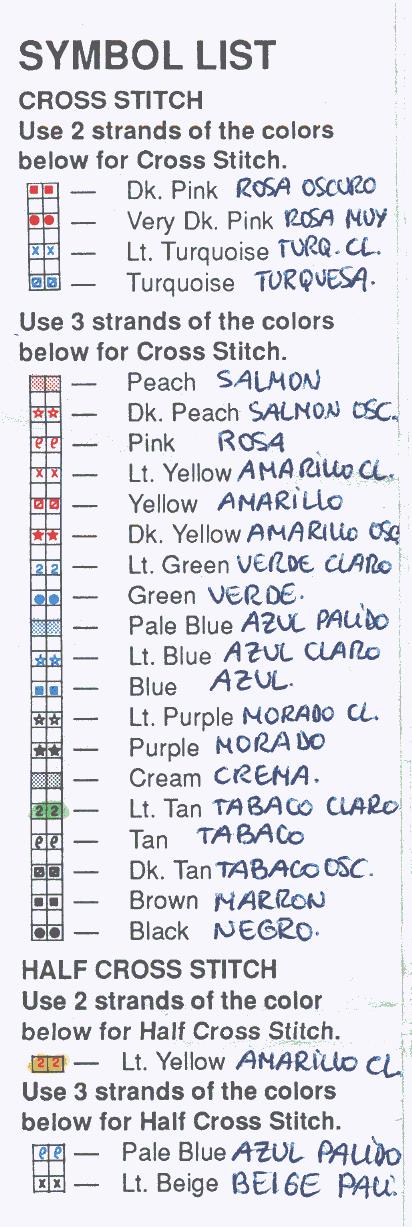 SYMBOL LIST
CROSS STITCH
Use 2 strands of the colors
below for Cross Stitch.
— Dk. Pink ROSA OSCURO
— Very Dk. Pink ROSA MUY
— Lt. Turquoise TURQ. CL.
— Turquoise TURQUESA.
Use 3 strands of the colors
below for Cross Stitch.
— Peach SALMON
— Dk. Peach SALMON OSC.
— Pink ROSA
— Lt. Yellow AMARILLO CL.
— Yellow AMARILLO
— Dk. Yellow AMARILLO OSC
2 2 — Lt. Green VERDE CLARO
— Green VERDE.
— Pale Blue AZUL PALIDO
— Lt. Blue AZUL CLARO
— Blue AZUL.
— Lt. Purple MORADO CL.
— Purple MORADO
— Cream CREMA.
2 2 — Lt. Tan TABACO CLARO
— Tan TABACO
— Dk. Tan TABACO OSC.
— Brown MARRON
— Black NEGRO.
HALF CROSS STITCH
Use 2 strands of the color
below for Half Cross Stitch.
2 2 — Lt. Yellow AMARILLO CL
Use 3 strands of the colors
below for Half Cross Stitch.
— Pale Blue AZUL PALIDO
x x — Lt. Beige BEIGE PALI.